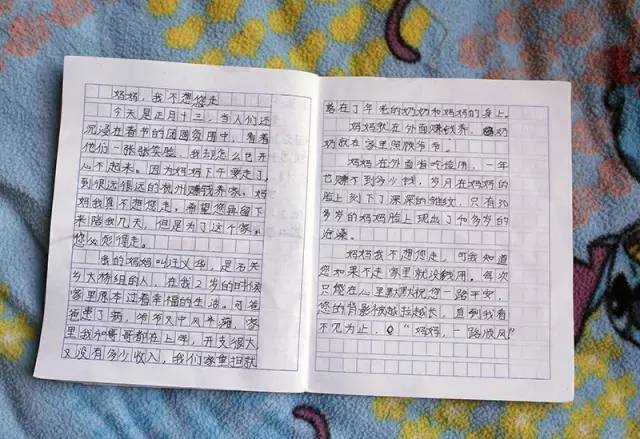 妈妈，我不想您走
今天是正月十三，当人们还
沉浸在春节的团圆氛围中，看着
他们一张张笑脸，我却怎么也开
心不起来。因为妈妈下午要走了，
到很远很远的杭州赚钱养家，妈
妈我真不想您走，希望您再留下
来陪我几天，但是为了这个家，
您必须得走。
我的妈妈叫汪义华，是石关
乡大桥组的人，在我2岁的时候
家里原本过着幸福的生活。可爸
爸患了病，爷爷又中风平瘫，家
里我和哥哥都在上学，开支很大，
又没有多少收入，我们家重担就
落在了年老的奶奶和妈妈的身上。
妈妈就在外面赚钱养，奶
奶就在家里照顾爷爷。
妈妈在外面省吃俭用，一年
也赚不到多少钱，岁月在妈妈的
脸上刻下了深深的皱纹，只有30
多岁的妈妈脸上现出了40多岁的
沧桑。
妈妈我不想您走，可我知道
您如果不走家里就没钱用。每次
只能在心里默默祝您一路平安，
您的背影被越拉越长，直到我看
不见为止，“妈妈，一路顺风”